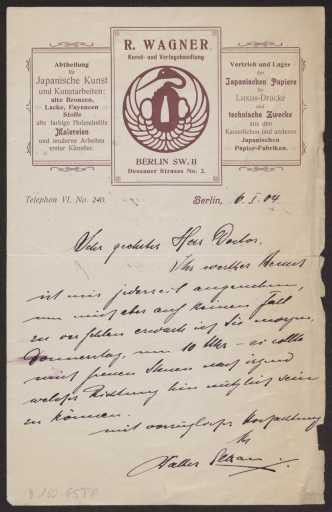 R. WAGNER
Kunst- und Verlagshandlung
BERLIN SW. 11
Dessauer Strasse No. 2.
Abtheilung
für
Japanische Kunst
und Kunstarbeiten:
alte Bronzen,
Lacke, Fayencen
Stoffe
alte farbige Holzschnitte
Malereien
und moderne Arbeiten
erster Künstler.
Vertrieb und Lager
der
Japanischen Papiere
für
Luxus-Drucke
und
technische Zwecke
aus den
Kaiserlichen und anderen
Japanischen
Papier-Fabriken.
Telephon VI. No. 240.
Berlin, 6. I. 04
Sehr geehrter Herr Doctor.
Ihr werther Besuch
ist mir jederzeit angenehm,
um mich aber auf keinen Fall
zu verfehlen erwarte ich Sie morgen,
Donnerstag, um 10 Uhr – es sollte
mich freuen Ihnen nach irgend
welcher Richtung hin nützlich sein
zu können.
mit vorzüglicher Hochachtung
Ihr